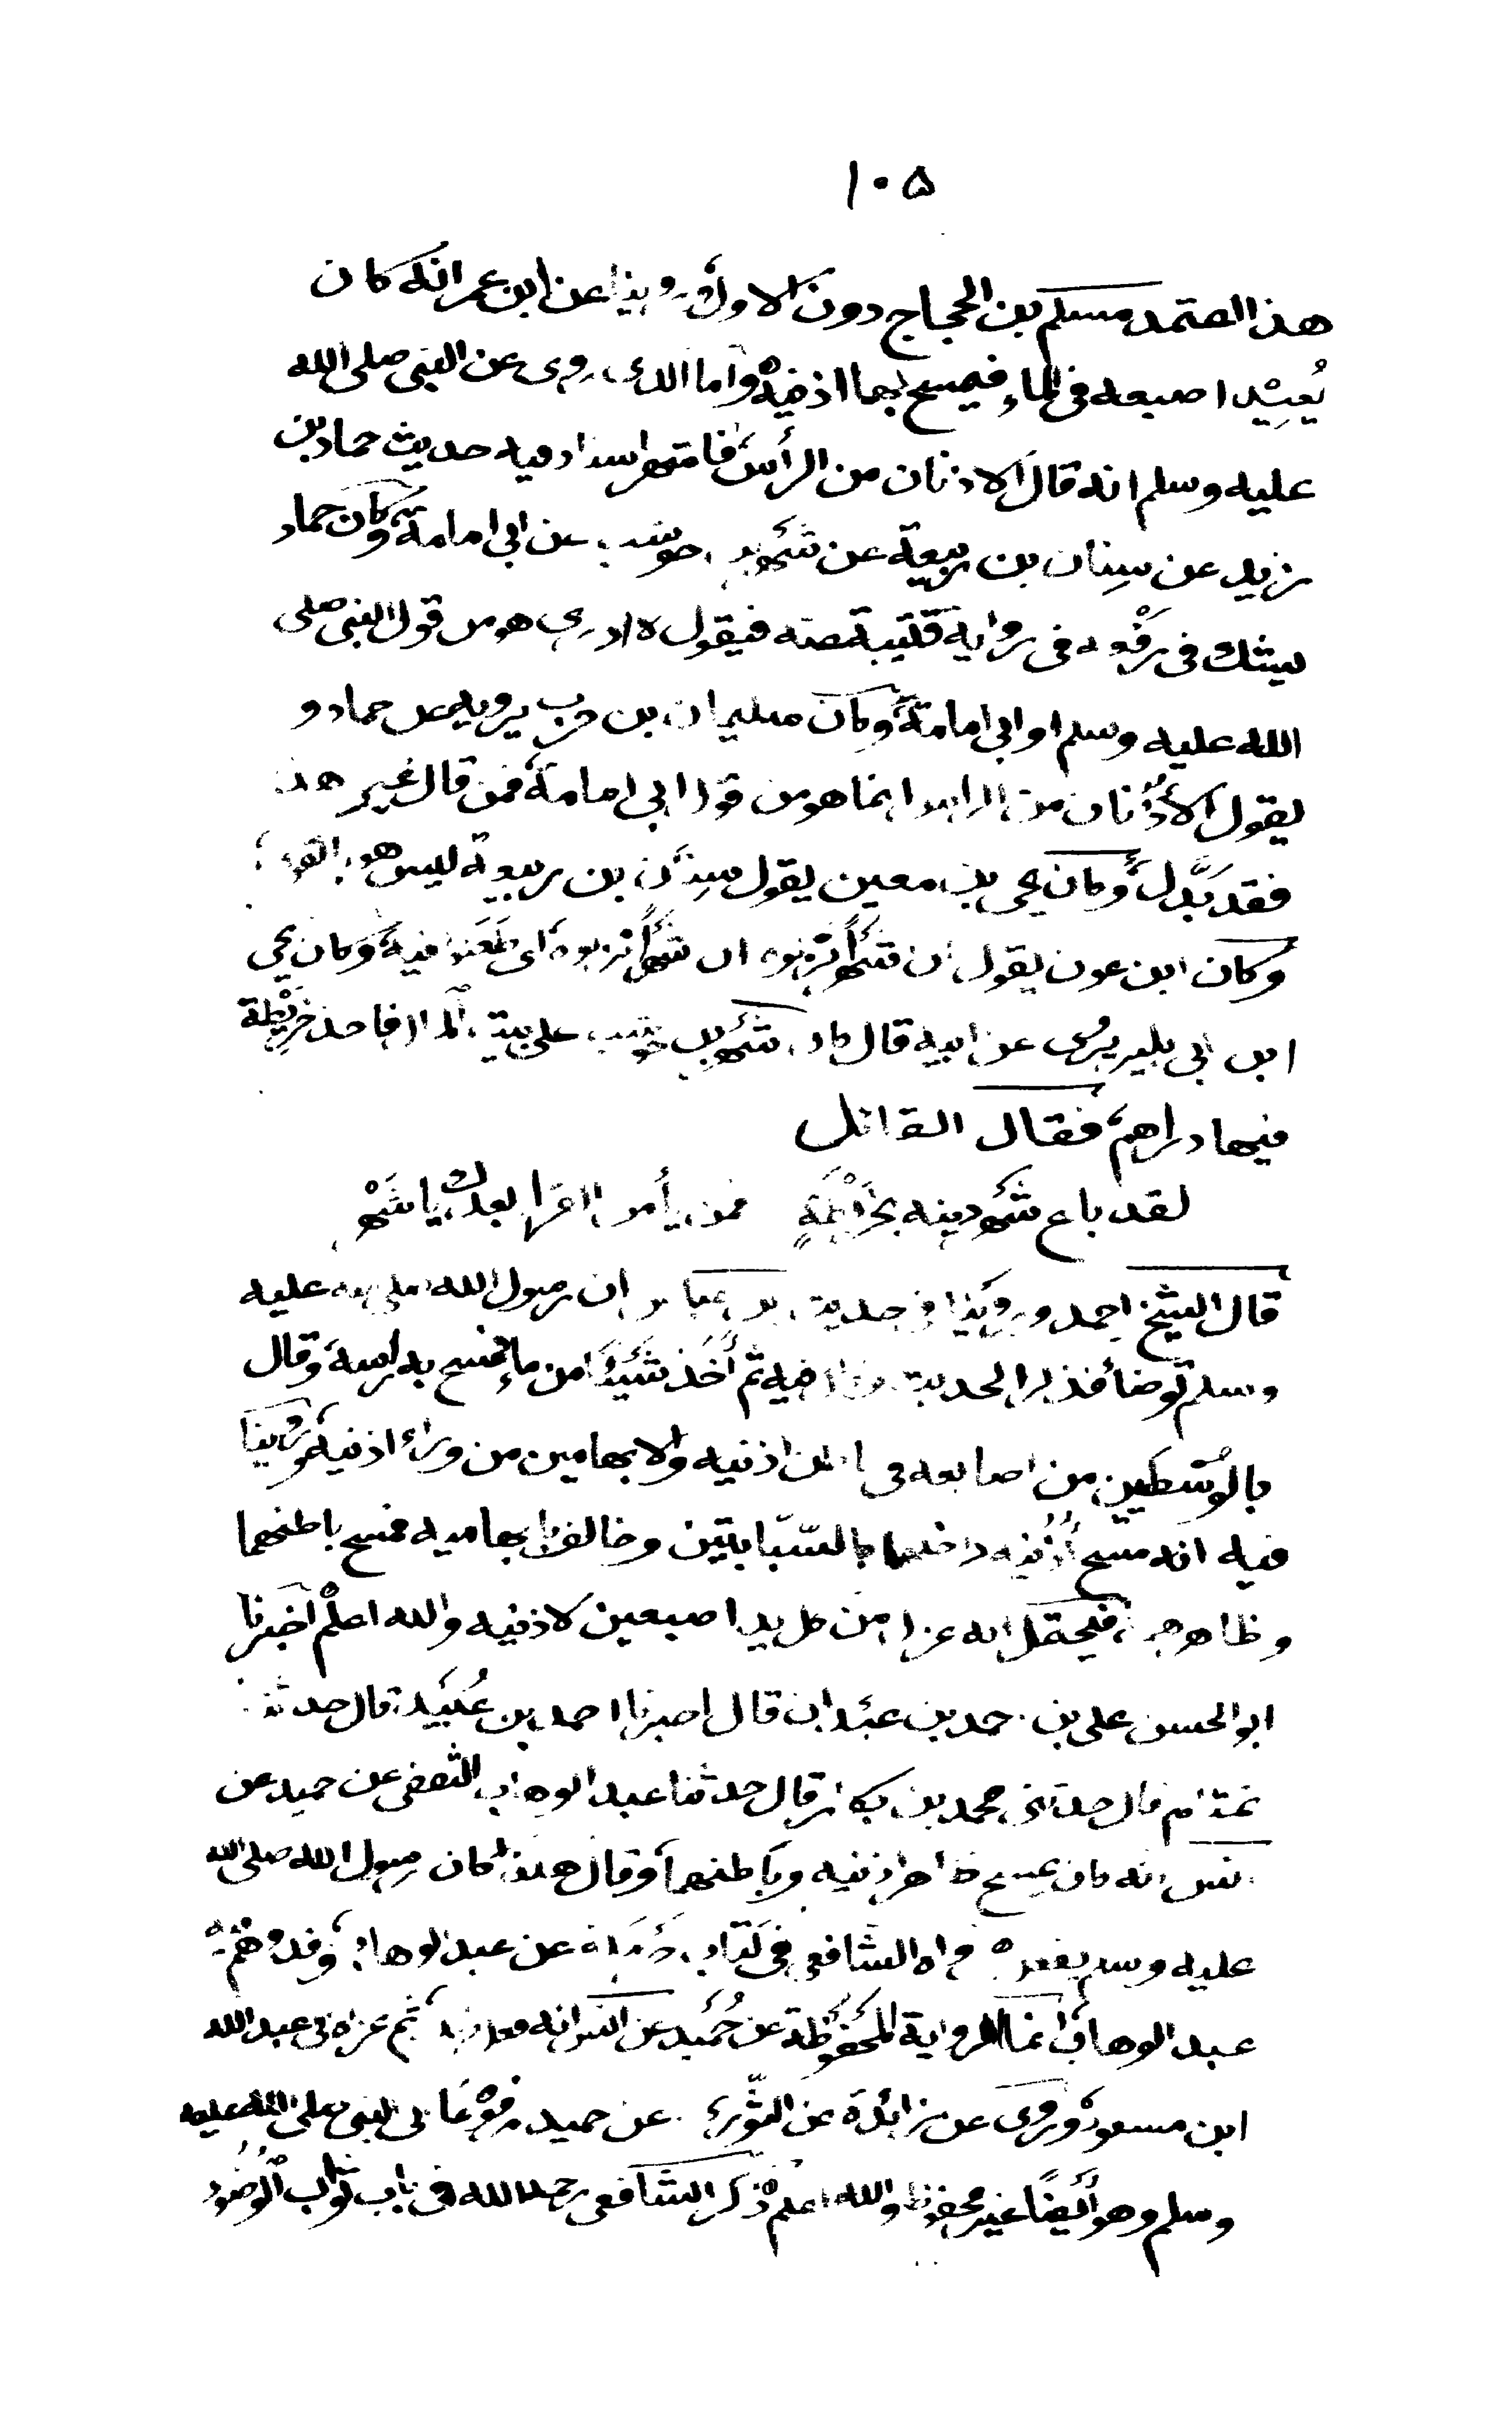 ١٠٥
هذا اعتمد مسلم بن الحجاج دون الاول وروينا عن ابن عمر انه كان
يُعِيْد اصبعه في الماء فيمسح بهما اذنيه واما الذي روى عن النبي صلى الله
عليه وسلم انه قال الاذنان من الرأس فاشهر اسناد فيه حديث حماد بن
زيد عن سِنان بن ربيعة عن شَهْر بن حوشب عن ابي امامة وكان حماد
يشك في رَفْعه في رواية قتيبة عنه فيقول لا ادري هو من قول النبي صلى
الله عليه وسلم او ابي امامة وكان سليمان بن حرب يرويه عن حماد و
يقول الأُذُنان من الراس انما هو من قول ابي امامة فمن قال غير هذا
فقد بَدَّل وكان يحيى بن معين يقول سِنان بن ربيعة ليس هو بالقوي
وكان ابن عون يقول ان شَهْراً نزكوه ان شَهْراً نزكوه اى طَعَنوا فيه وكان يحيى
ابن ابي بكير يروى عن ابيه قال كان شَهْر بن حوشب على بيت المال فاخذ خَرِيْطة
فيها دراهم فقال القائل
لقد باع شَهْر دينه بخَرِيْطَةٍ فمن يأمن القراء بعدك يا شَهْر
قال الشيخ احمد وروينا في حديث ابن عباس ان رسول الله صلى الله عليه
وسلم توضأ فذكر الحديث وقال فيه ثم أَخَذ شَيْئًا من ماء فمسح به راسه وقال
بالوُسْطيين من اصابعه في باطن اذنيه والابهامين من وراء اذنيه ورُوينا
فيه انه مسح أُذُنيه داخلهما بالسّبّابتين وخالف بابهاميه فمسح باطنهما
وظاهرهما فيحتمل انه عزل من كل يد اصبعين لاذنيه والله اعلم اخبرنا
ابو الحسن علي بن احمد بن عَبْدان قال اخبرنا احمد بن عُبَيْد قال حدثنا
تمتام قال حدثني محمد بن بكار قال حدثنا عبد الوهاب الثقفى عن حميد عن
انس انه كان يمسح ظاهر اذنيه وباطنهما وقال هكذا كان رسول الله صلى الله
عليه وسلم يفعله رواه الشافعي في كتاب حَرْمَلة عن عبد الوهاب وقد وَهِمَ فيه
عبد الوهاب انما الرواية المحْفُوْظة عن حُمَيْد عن انس انه فعل ذلك ثم عزاه الى عبد الله
ابن مسعود ورُوِى عن زائدة عن الثَّوْرى عن حميد مرفوْعًا الى النبي صلى الله عليه
وسلم وهو أَيْضًا غير محفوظ والله اعلم ذَكَر الشافعي رحمه الله في باب ثواب الوُضوء